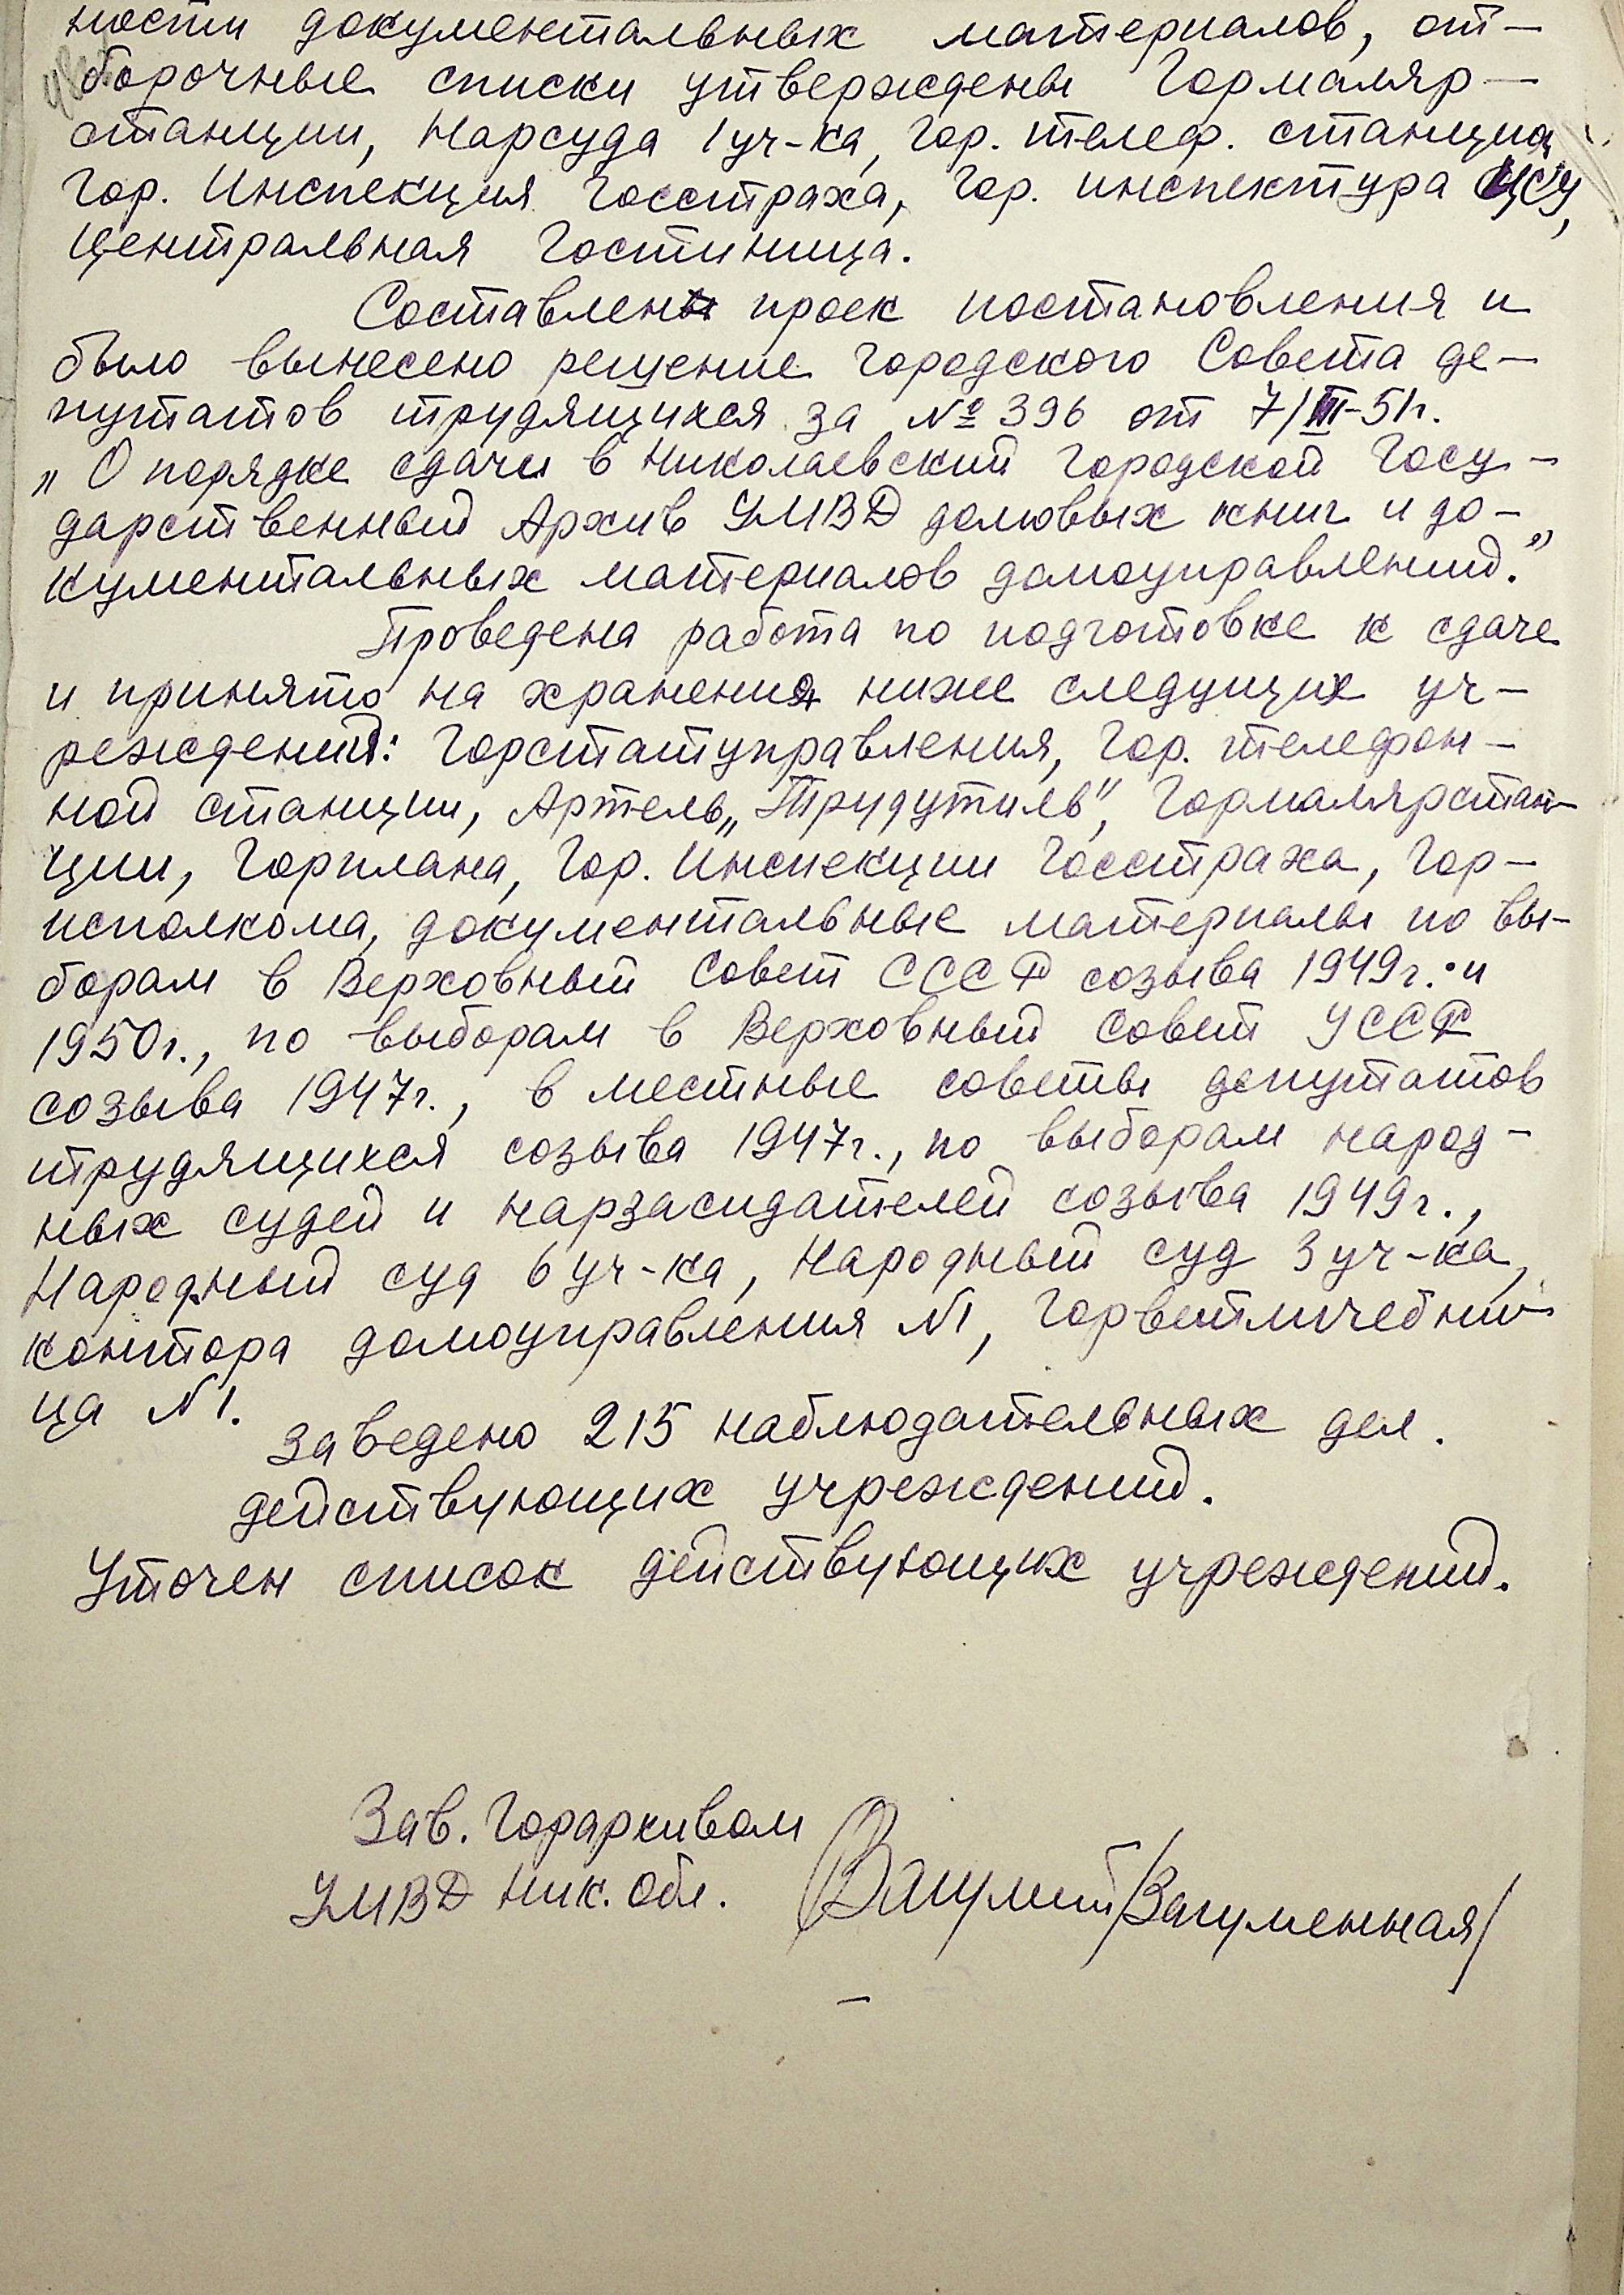 ности документальных материалов, от-
борочные списки утверждены Гормаляр-
станции, Нарсуда 1 уч-ка, Гор. телеф. станция
Гор. Инспекция Госстраха, Гор. инспектура ЦСУ,
Центральная Гостиница.
Составлен проек постановления и
было вынесено решение Городского Совета де-
путатов трудящихся за № 396 от 7/III-51г.
„О порядке сдачи в Николаевский Городской Госу-
дарственный Архив УМВД домовых книг и до-
кументальных материалов домоуправлений."
Проведена работа по подготовке к сдаче
и принято на хранения ниже следущих уч-
реждений: Горстатуправления, Гор. телефон-
ной станции, Артель „Трудутиль", Гормалярстан-
ции, Горплана, Гор. Инспекции Госстраха, Гор-
исполкома, документальные материалы по вы-
борам в Верховный Совет СССР созыва 1949г. и
1950г., по выборам в Верховный Совет УССР
созыва 1947г., в местные советы депутатов
трудящихся созыва 1947г., по выборам народ-
ных судей и нарзасидателей созыва 1949г.,
Народный суд 6 уч-ка, Народный суд 3 уч-ка,
контора домоуправления N1, Горветличебни-
ца N1.
Заведено 215 наблюдательных дел.
действующих учреждений.
Уточен список действующих учреждений.
Зав. Горархивом
УМВД Ник. Обл. /Загуменная/